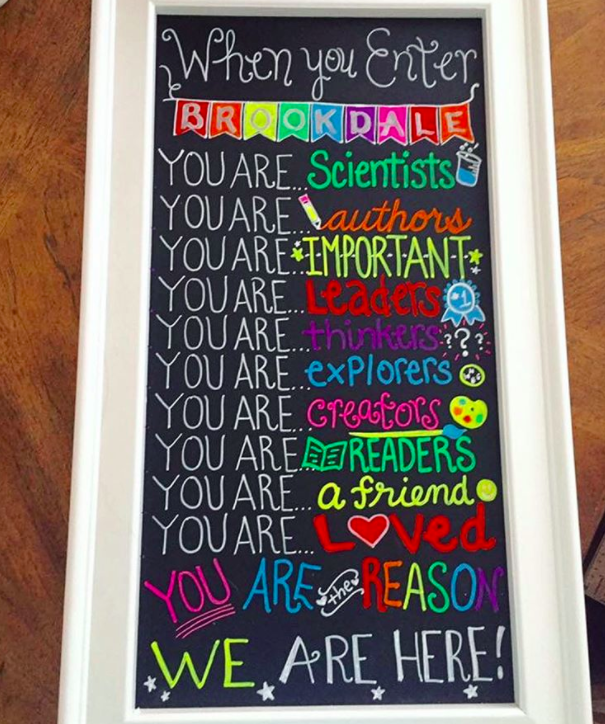 When you Enter
BROOKDALE
YOU ARE... Scientists
YOU ARE... authors
YOU ARE... IMPORTANT
YOU ARE... Leaders #1
YOU ARE... thinkers ???
YOU ARE... explorers
YOU ARE... creators
YOU ARE... READERS
YOU ARE... a friend
YOU ARE... L❤ved
YOU ARE the REASON
WE ARE HERE!